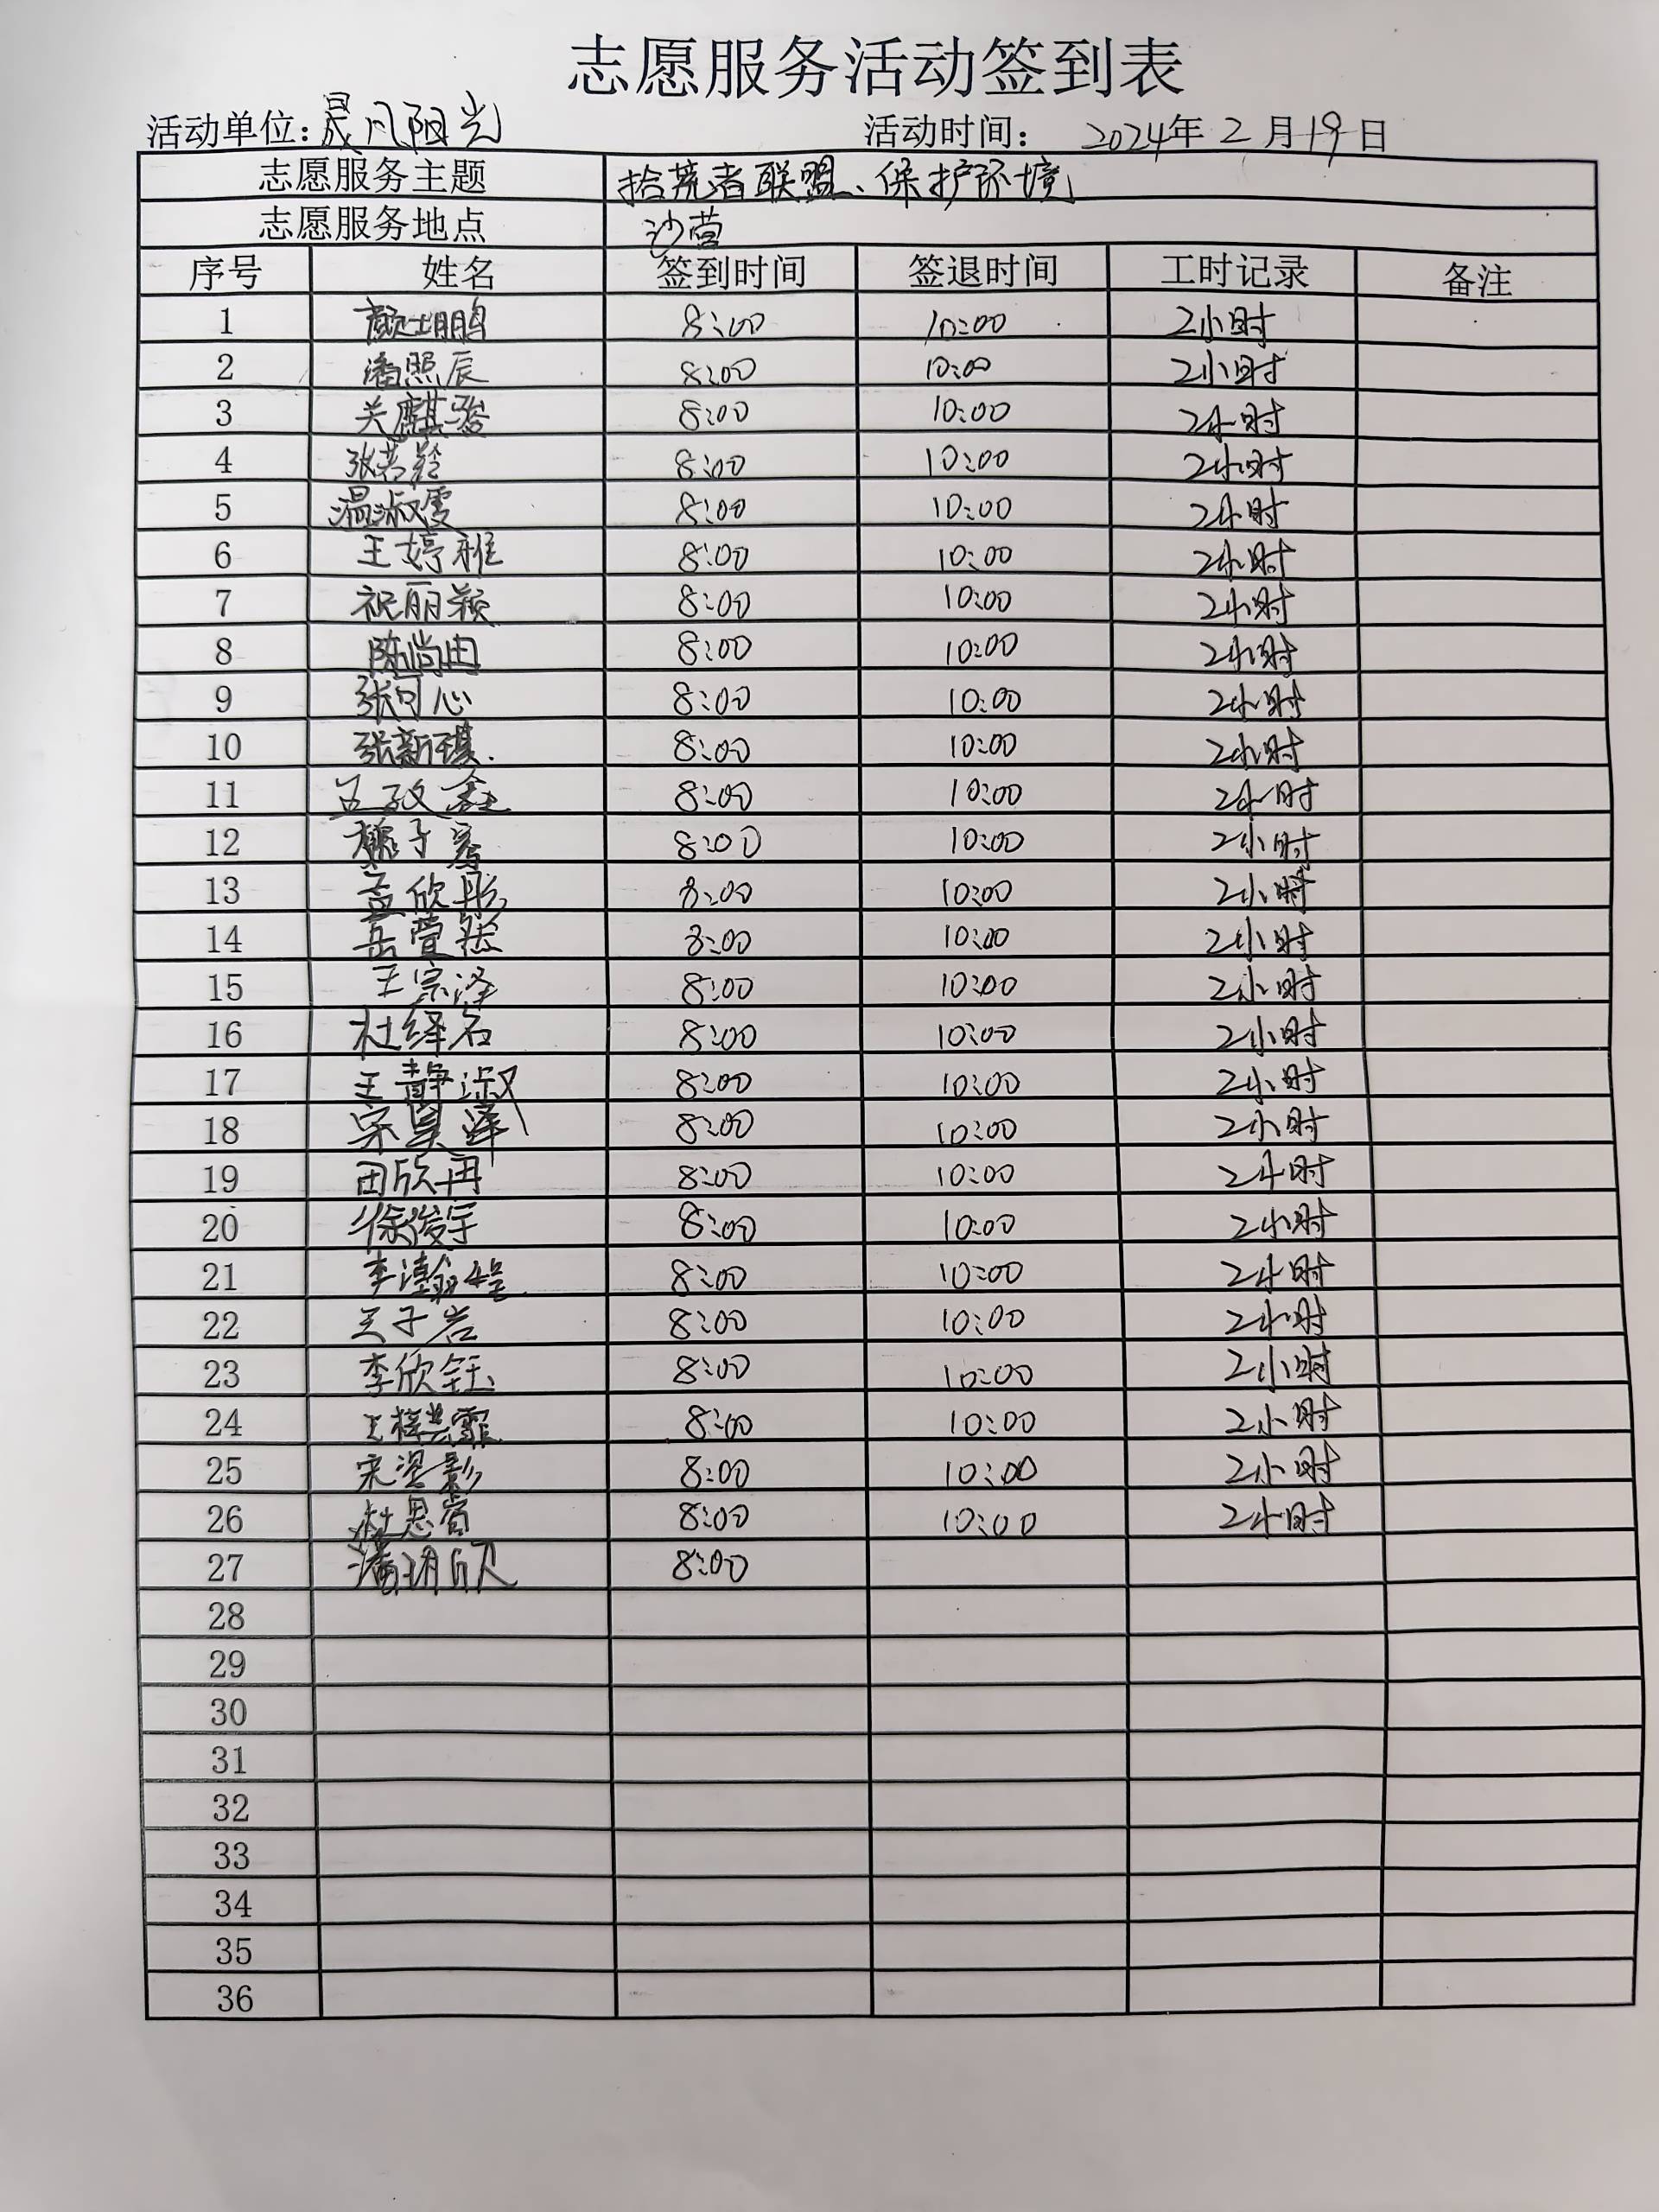 志愿服务活动签到表
活动单位：晟凡阳光 活动时间： 2024年 2 月 19 日
志愿服务主题 拾荒者联盟、保护环境
志愿服务地点 沙营
序号 姓名 签到时间 签退时间 工时记录 备注
1 8:00 10:00 2小时
2 潘照辰 8:00 10:00 2小时
3 关麒骏 8:00 10:00 2小时
4 8:00 10:00 2小时
5 温淑雯 8:00 10:00 2小时
6 王婷雅 8:00 10:00 2小时
7 祝丽颖 8:00 10:00 2小时
8 陈尚田 8:00 10:00 2小时
9 张可心 8:00 10:00 2小时
10 张新琪 8:00 10:00 2小时
11 8:00 10:00 2小时
12 8:00 10:00 2小时
13 孟欣彤 8:00 10:00 2小时
14 8:00 10:00 2小时
15 王宗泽 8:00 10:00 2小时
16 杜绎名 8:00 10:00 2小时
17 王静淑 8:00 10:00 2小时
18 宋昊泽 8:00 10:00 2小时
19 田欣冉 8:00 10:00 2小时
20 徐俊宇 8:00 10:00 2小时
21 8:00 10:00 2小时
22 王子岩 8:00 10:00 2小时
23 李欣钰 8:00 10:00 2小时
24 8:00 10:00 2小时
25 8:00 10:00 2小时
26 8:00 10:00 2小时
27 潘玥欣 8:00
28
29
30
31
32
33
34
35
36